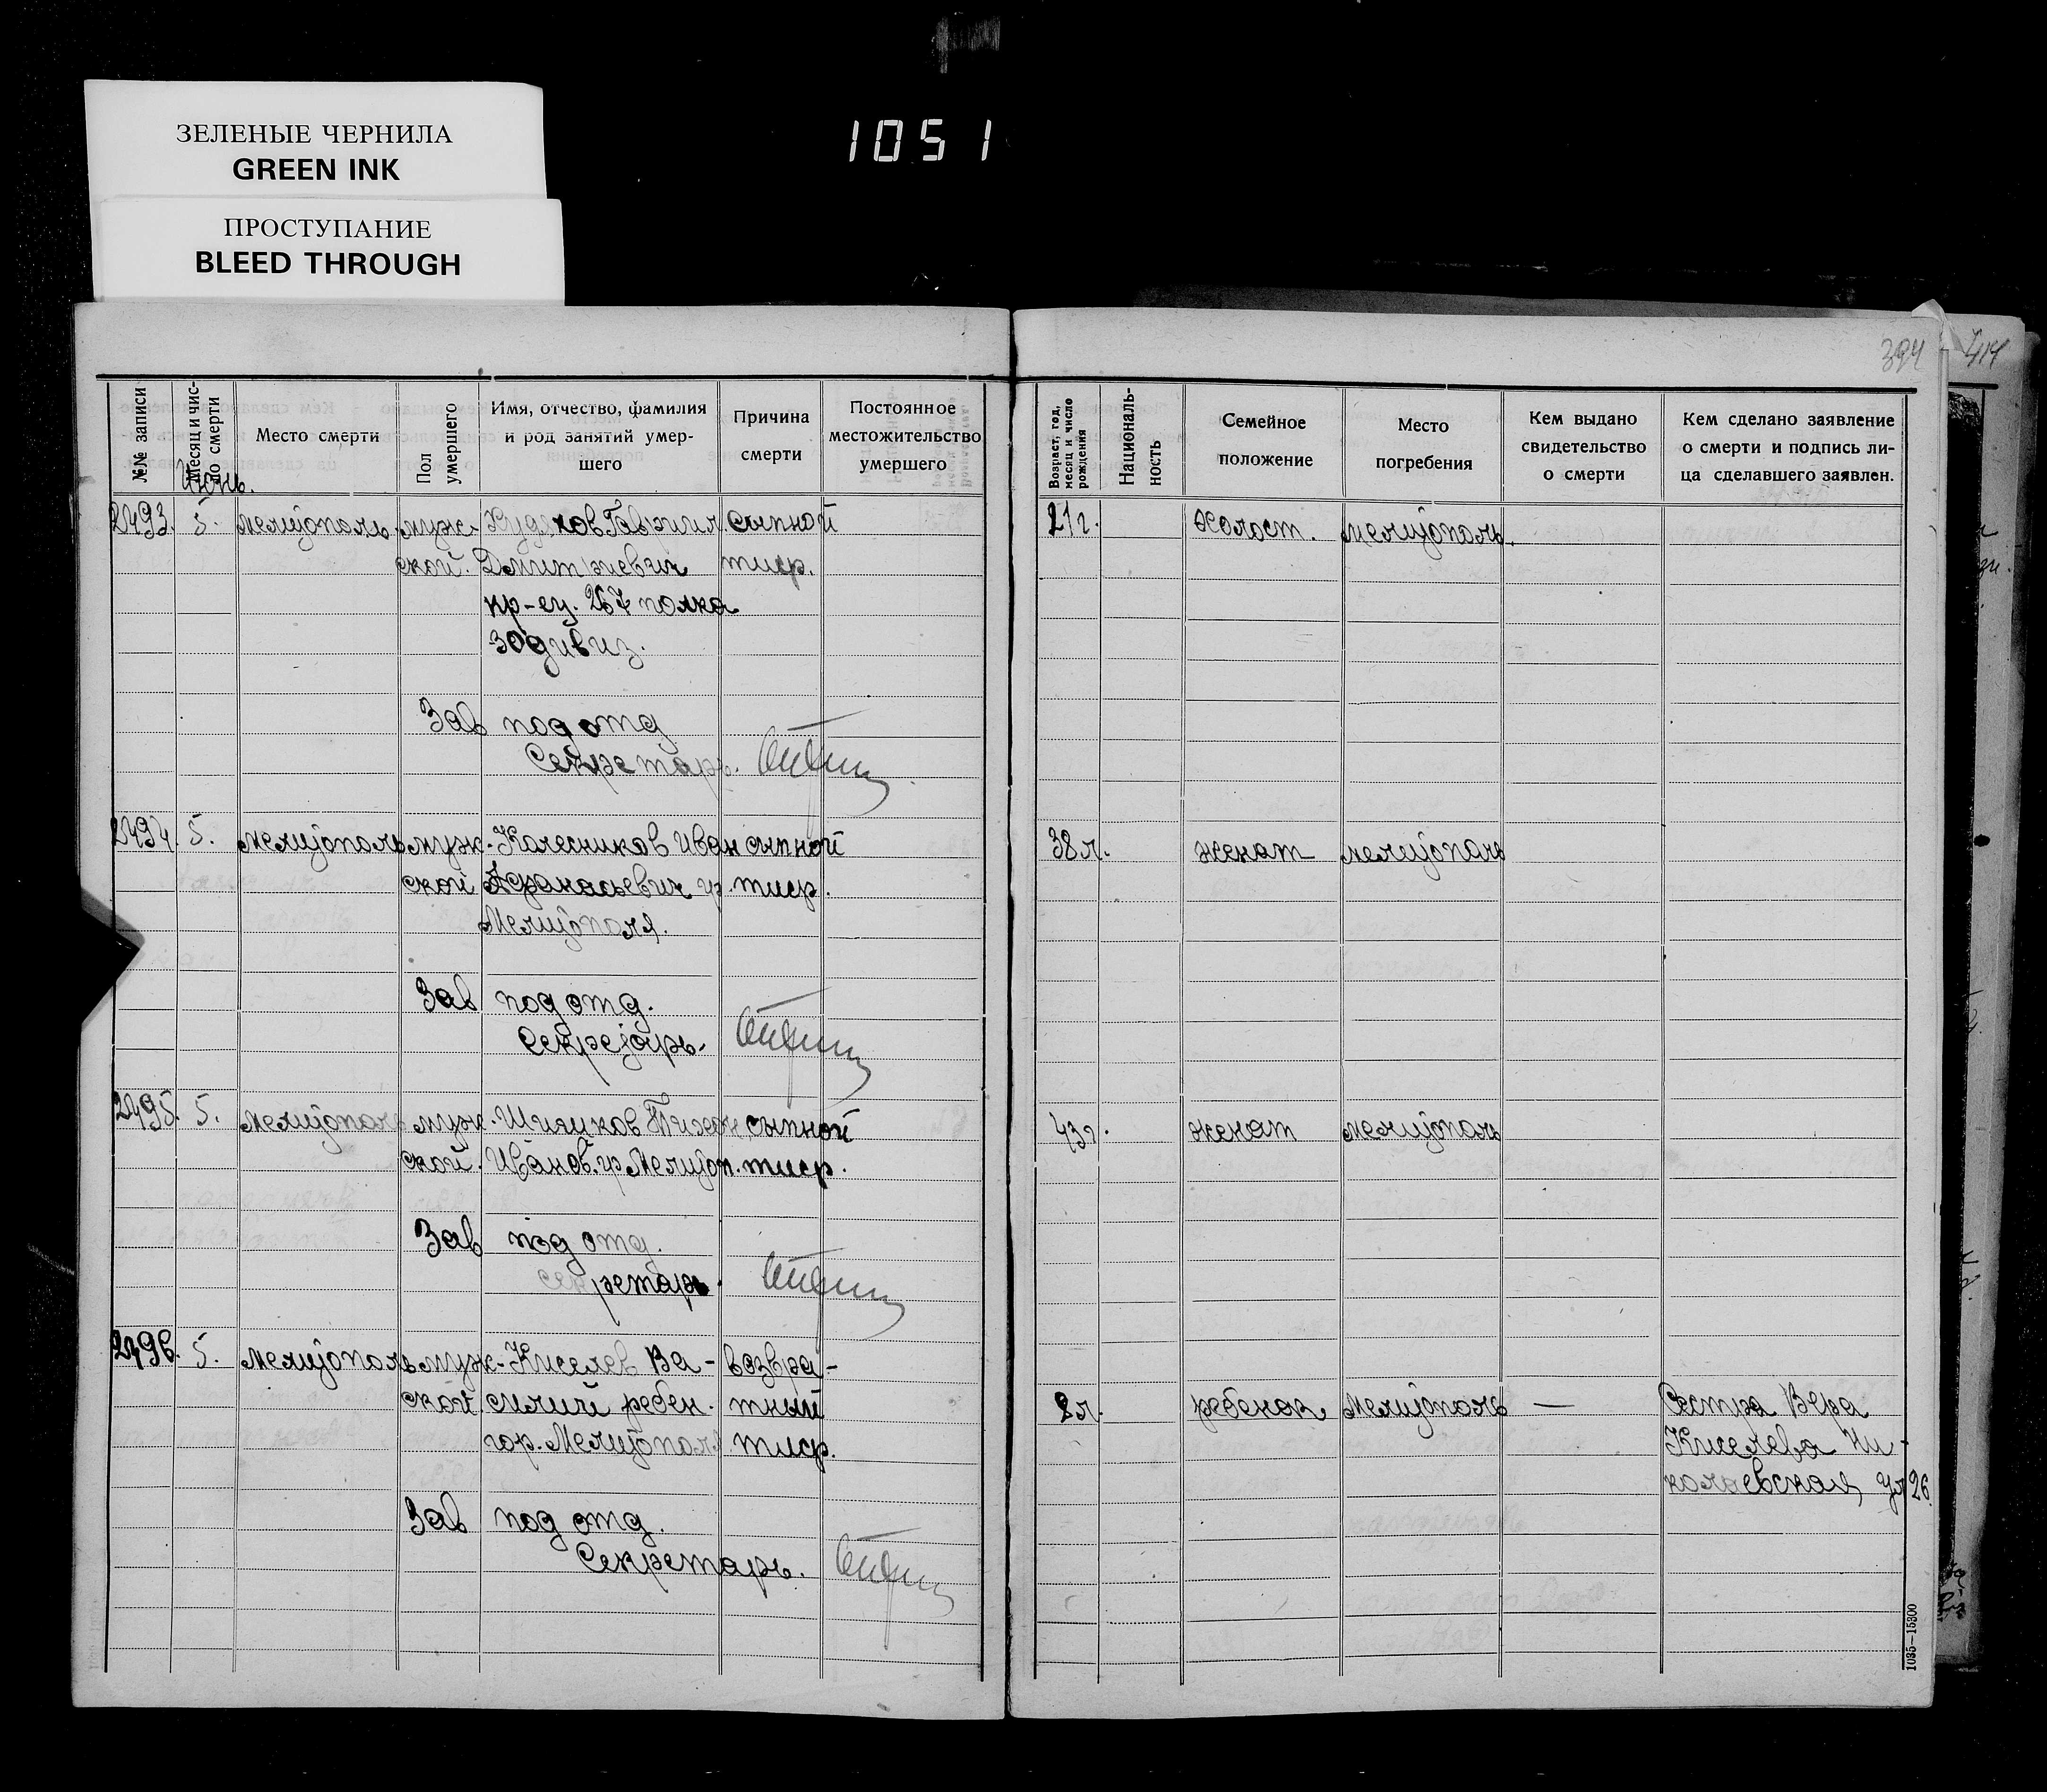 1051
ЗЕЛЕНЫЕ ЧЕРНИЛА
GREEN INK
ПРОСТУПАНИЕ
BLEED THROUGH
394 414
№№ записи
Месяц и число смерти
Место смерти
Пол умершего
Имя, отчество, фамилия
и род занятий умер-
шего
Причина
смерти
Постоянное
местожительство
умершего
Возраст, год,
месяц и число
рождения
Националь-
ность
Семейное
положение
Место
погребения
Кем выдано
свидетельство
о смерти
Кем сделано заявление
о смерти и подпись ли-
ца сделавшего заявлен.
Июнь.
2493. 5. Мелитополь муж- Гавриил сыпной 21 г. Холост. Мелитополь.
ской. Дмитриевич тиф.
кр-ец. 267 полка
30 дивиз.
Зав под отд
Секретарь.
2494. 5. Мелитополь муж- Колесников Иван сыпной 38 л. женат Мелитополь
ской Афанасьевич гр. тиф.
Мелитополя.
Зав под отд.
Секретарь.
2495. 5. Мелитополь муж- Шишков Тихон сыпной 43 г. женат Мелитополь
ской. Иванов. гр. Мелитоп. тиф.
Зав под отд.
Секретарь.
2496. 5. Мелитополь муж- Киселев Ва- возвра-
ской силий ребен. тный 2 л. ребенок Мелитополь — Сестра Вера
гор. Мелитополя тиф. Киселева Ни-
колаевская ул 26.
Зав под отд.
Секретарь.
1035—15300